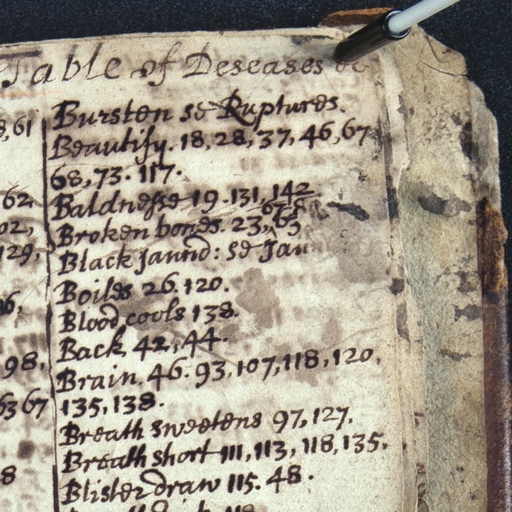 Table of Deseases
Bursten se Ruptures.
Beautify. 18, 28, 37, 46, 67
68, 73. 117.
Baldnesse 19. 131, 142
Broken bones. 23, 65
Black Jaund: se Jaun
Boiles 26. 120.
Blood cools 138.
Back 42, 44.
Brain, 46. 93, 107, 118, 120,
135, 138.
Breath sweetens 97, 127,
Breath short 111, 113, 118, 135.
Blister draw 115. 48.
61
62,
02,
129,
98,
63 67
8